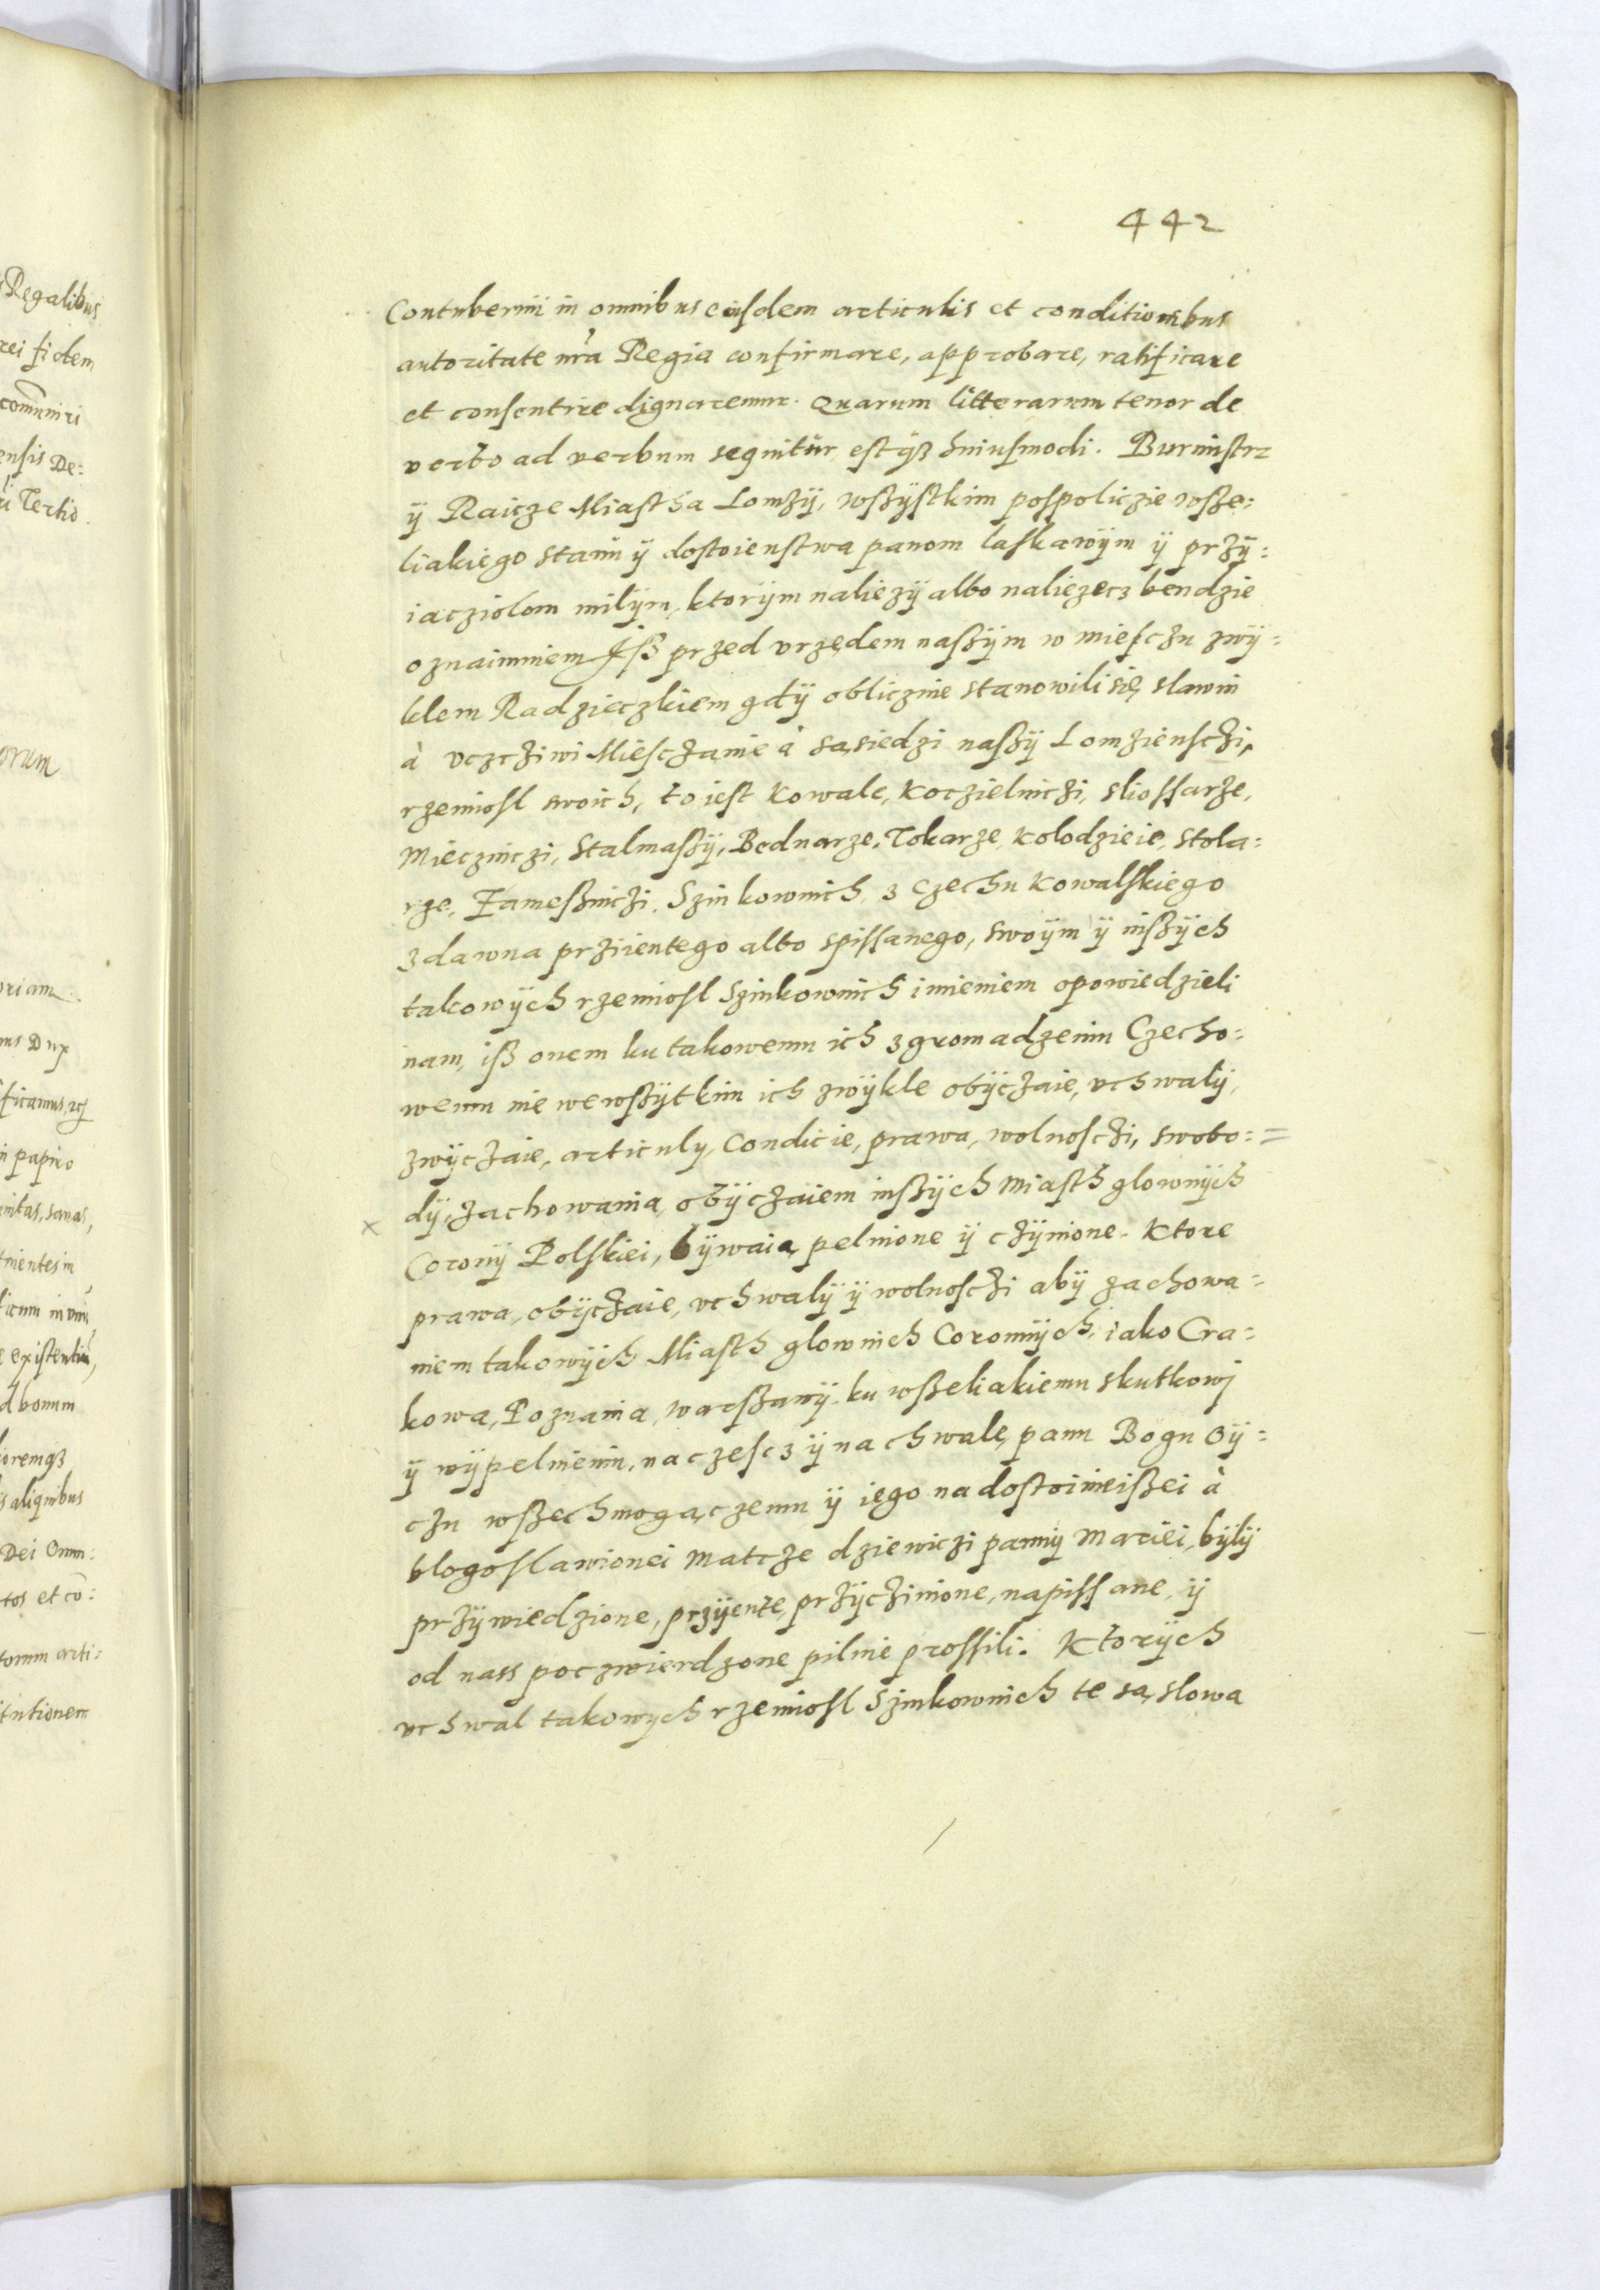 442
Contubernii in omnibus eiusdem articulis et conditionibus
autoritate nrā Regia confirmare, approbare, ratificare
et consentire dignaremur. Quarum litterarum tenor de
verbo ad verbum sequitur estqȝ huiusmodi. Burmistrz
ÿ Raicze Miastha Lomżÿ, wszÿstkim pospoliczie wsze:
liakiego stanu ÿ dostoienstwa panom laskawÿm ÿ przÿ:
iacziolom milÿm, ktorÿm nalieżÿ albo nalieżecz bendzie
oznaimuiem Iß przed vrzędem naszÿm w miesczu zwÿ:
klem Radzieczkiem gdÿ oblicznie stanowili się slawni
à vczcziwi Miesczanie à sąsiedzi naszÿ Lomzienscżi,
rzemiosl swoich, to iest Kowale, Koczielniczi, sliossarze,
Miecznicżi, Stalmaszÿ, Bednarze, Tokarze, Kolodzieie, Stola:
rze, Zamesznicżi, Szinkownich, z Czechu Kowalskiego
zdawna prziientego albo spissanego, swoÿm ÿ inszÿch
takowÿch rzemiosl Szinkownich imieniem opowiedzieli
nam, iß onem ku takowemu ich zgromadzeniu Czecho:
wemu nie wewszÿtkim ich zwÿkle obÿczaie, vchwalÿ,
zwÿczaie, articuly, Condicie, prawa, wolnosczi, swobo:=
dÿ, zachowania, obÿczaiem inszÿch Miasth glownÿch
x
Coronÿ Polskiei, bÿwaią pelnione ÿ czÿnione. Ktore
prawa, obÿczaie, vchwalÿ ÿ wolnosczi abÿ zachowa:
niem takowÿch Miasth glownich Coronnÿch, iako Cra:
kowa, Poznania, warszawÿ, ku wszeliakiemu skutkowj
ÿ wÿpelnieniu, na czescz ÿ na chwalę panu Bogu Oÿ:
czu wszechmogączemu ÿ iego nadostoinieiszei à
blogoslawionei Matcze dziewiczi pannÿ Mariei, bÿlÿ
przÿwiedzione, przÿente, przÿczinione, napissane, ÿ
od nass poczwierdzone pilnie prossili. Ktorÿch
vchwal takowych rzemiosl Szinkownich te są slowa